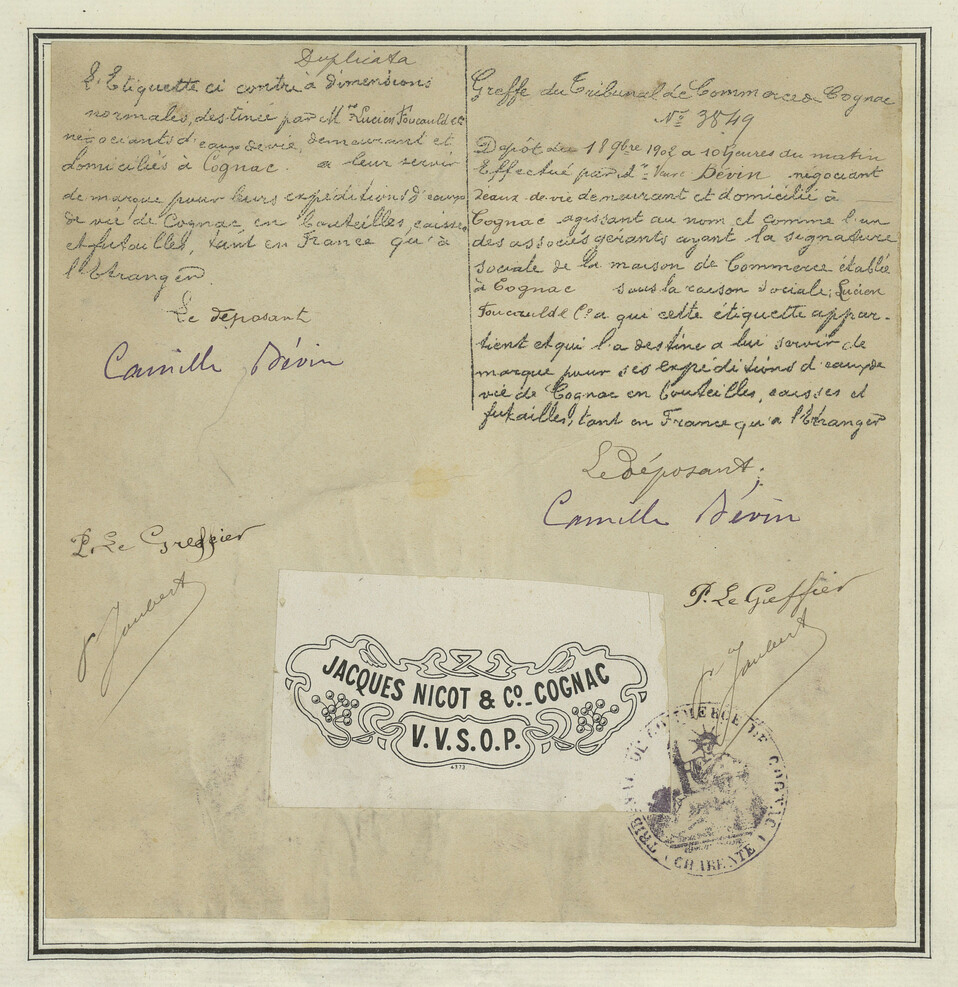 Duplicata
L'Etiquette ci contre à dimensions
normales, destinée par Mrs Lucien Foucauld et Cie
négociants d'eaux de vie, demeurant et
domiciliés à Cognac. a leur servir
de marque pour leurs expéditions d'eaux
de vie de Cognac en bouteilles, caisses
et futailles, tant en France qu'à
l'Etranger.
Le déposant
Camille Dévin
P. Le Greffier
Joubert
Greffe du Tribunal de Commerce de Cognac
No 3849
Dépôt du 18 9bre 1902 a 10 heures du matin
Effectué par Mr Dévin négociant
d'eaux-de-vie demeurant et domicilié à
Cognac agissant au nom et comme l'un
des associés gérants ayant la signature
sociale de la maison de Commerce établie
à Cognac sous la raison sociale; Lucien
Foucauld & Co a qui cette étiquette appar-
tient et qui l'a destiné a lui servir de
marque pour ses expéditions d'eaux de
vie de Cognac en bouteilles, caisses et
futailles, tant en France qu'a l'Etranger
Le déposant,
Camille Dévin
P. Le Greffier
Joubert
JACQUES NICOT & Co_ COGNAC
V.V.S.O.P.
4373
TRIBUNAL DE COMMERCE DE COGNAC
CHARENTE